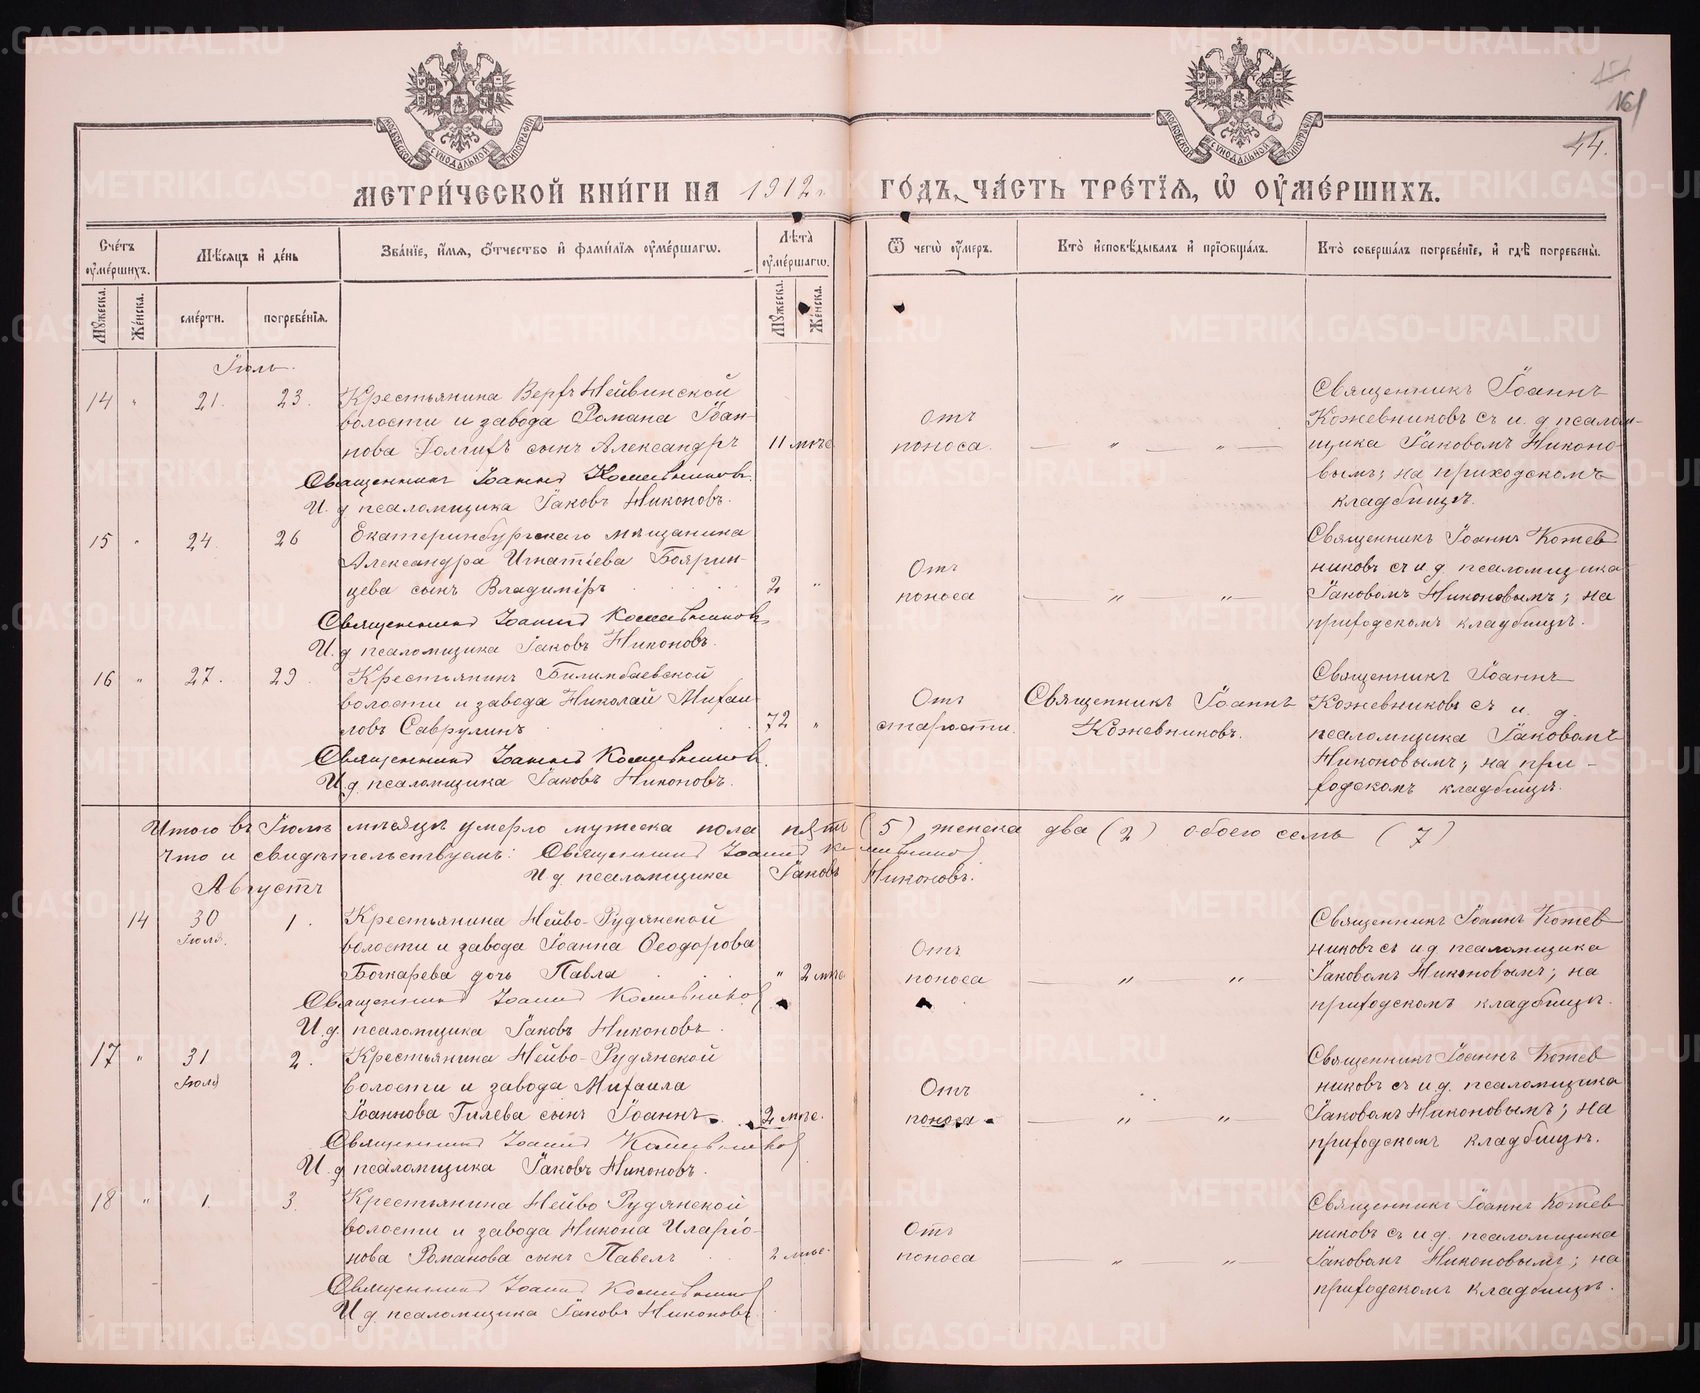 161
44.
МОСКОВСКОЙ СѴНОДАЛЬНОЙ ТИПОГРАФІИ
МОСКОВСКОЙ СѴНОДАЛЬНОЙ ТИПОГРАФІИ
МЕТРИ́ЧЕСКОЙ КНИ́ГИ НА 1912 г. ГО́ДЪ, ЧА́СТЬ ТРЕ́ТІЯ, Ѡ ОУ҆МЕ́РШИХЪ.
Сче́тъ оу҆ме́ршихъ.
Мѣ́сяцъ и҆ де́нь
Зва́нїе, и҆́мя, ѻ҆́тчество и҆ фами́лїя оу҆ме́ршагѡ.
Лѣ́та оу҆ме́ршагѡ.
Ѿ чегѡ̀ оу҆́меръ.
Кто̀ и҆сповѣ́дывалъ и҆ прїѡбща́лъ.
Кто̀ соверша́лъ погребе́нїе, и҆ гдѣ̀ погребены̀.
Мꙋ́жеска.
Же́нска.
сме́рти.
погребе́нїя.
Мꙋ́жеска.
Же́нска.
Іюль.
14 " 21. 23. Крестьянина Верхъ Нейвинской
волости и завода Романа Іоан-
нова сынъ Александръ 11 мѣс.
Священникъ Іоаннъ Кожевниковъ.
И. д. псаломщика Іаковъ Никоновъ.
Отъ
поноса. — " — " —
Священникъ Іоаннъ
Кожевниковъ съ и. д псалом-
щика Іаковомъ Никоно-
вымъ; на приходскомъ
кладбищѣ.
15 " 24 26 Екатеринбургскаго мѣщанина
Александра Игнатіева Боярин-
цева сынъ Владиміръ 2 "
Священникъ Іоаннъ Кожевниковъ
И. д псаломщика Іаковъ Никоновъ.
Отъ
поноса — " — " —
Священникъ Іоаннъ Кожев
никовъ съ и д. псаломщика
Іаковомъ Никоновымъ; на
приходскомъ кладбищѣ.
16 " 27. 29. Крестьянинъ Билимбаевской
волости и завода Николай Михаи-
ловъ Саврулинъ 72 "
Священникъ Іоаннъ Кожевниковъ.
И д. псаломщика Іаковъ Никоновъ.
Отъ
старости.
Священникъ Іоаннъ
Кожевниковъ.
Священникъ Іоаннъ
Кожевниковъ съ и. д.
псаломщика Іаковомъ
Никоновымъ; на при-
ходскомъ кладбищѣ.
Итого въ Іюлѣ мѣсяцѣ умерло мужеска пола пять (5) женска два (2) обоего семь (7)
Что и свидѣтельствуемъ: Священникъ Іоаннъ Кожевниковъ
И д. псаломщика Іаковъ Никоновъ.
Августъ
14 30 Іюля. 1. Крестьянина Нейво-Рудянской
волости и завода Іоанна Ѳеодорова
Бочкарева дочь Павла " 2 мѣс
Священникъ Іоаннъ Кожевниковъ
И. д. псаломщика Іаковъ Никоновъ.
Отъ
поноса — " — " —
Священникъ Іоаннъ Кожев
никовъ съ и д псаломщика
Іаковомъ Никоновымъ; на
приходскомъ кладбищѣ.
17 " 31 Іюля 2. Крестьянина Нейво-Рудянской
волости и завода Михаила
Іоаннова Гилева сынъ Іоаннъ 2 мѣс.
Священникъ Іоаннъ Кожевниковъ
И. д псаломщика Іаковъ Никоновъ.
Отъ
поноса — " — " —
Священникъ Іоаннъ Кожев
никовъ съ и д. псаломщика
Іаковомъ Никоновымъ; на
приходскомъ кладбищѣ.
18 " 1. 3. Крестьянина Нейво Рудянской
волости и завода Никона Иларіо-
нова Романова сынъ Павелъ 2 мѣс.
Священникъ Іоаннъ Кожевниковъ
И д псаломщика Іаковъ Никоновъ.
Отъ
поноса — " — " —
Священникъ Іоаннъ Кожев
никовъ съ и д. псаломщика
Іаковомъ Никоновымъ; на
приходскомъ кладбищѣ.
METRIKI.GASO-URAL.RU